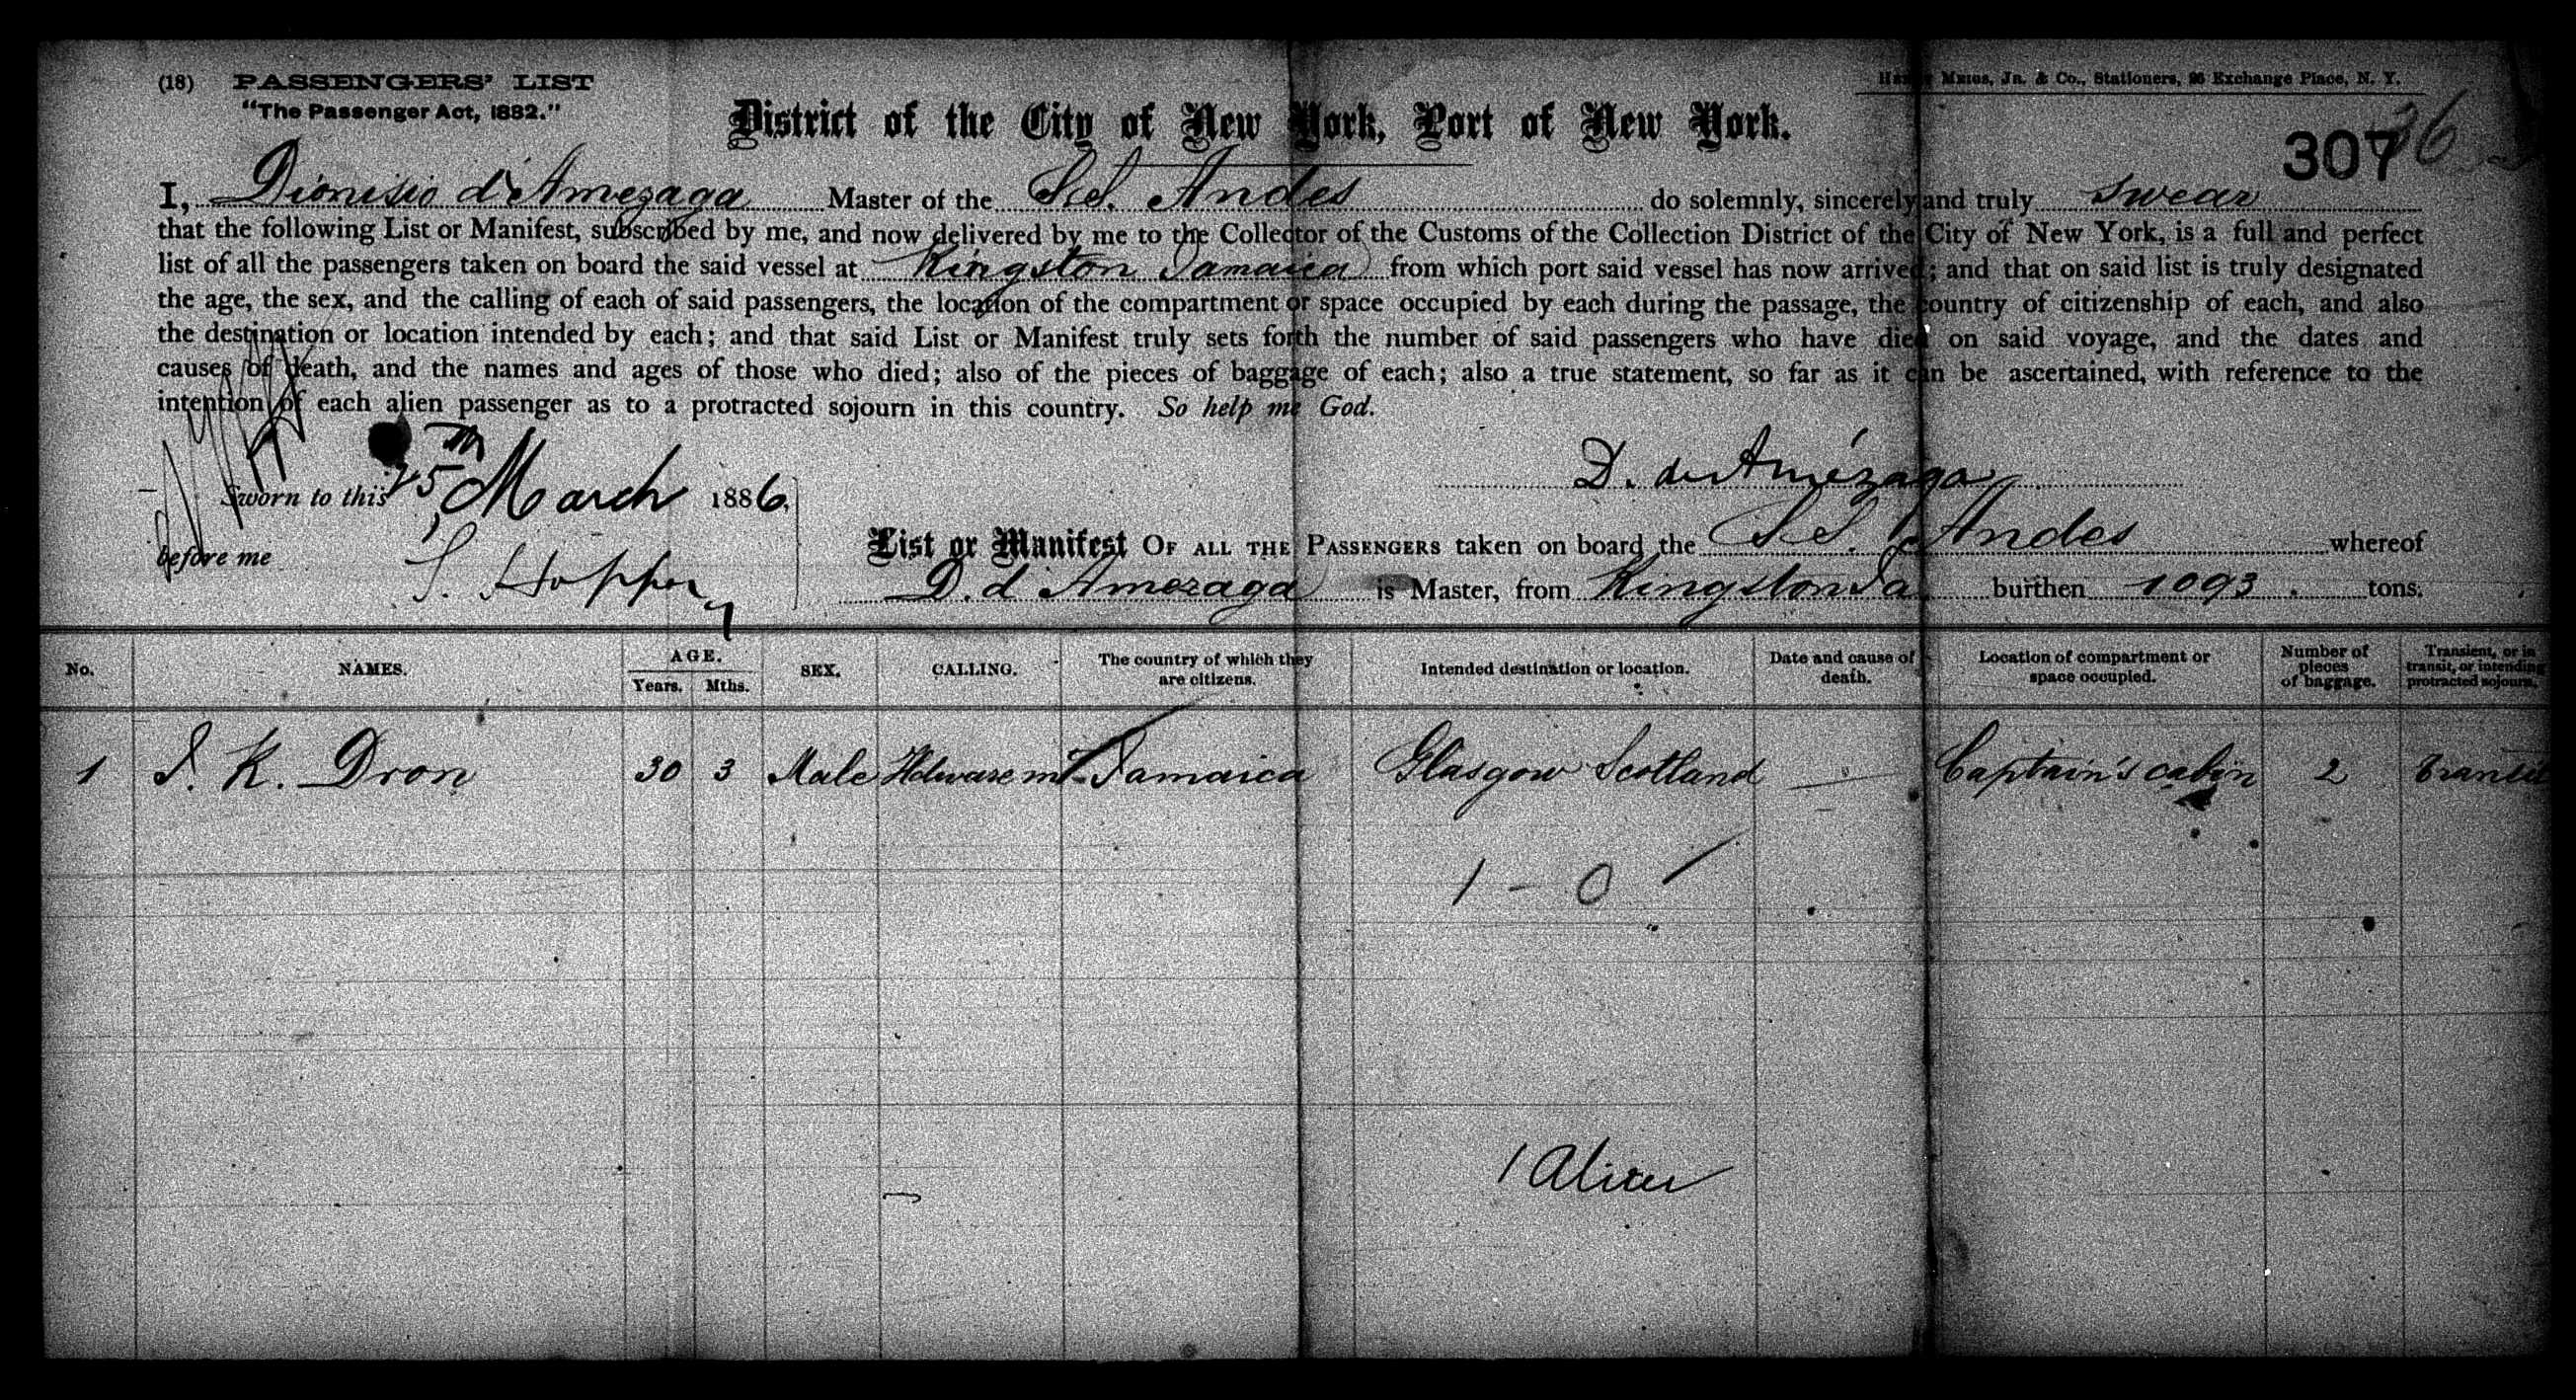 (18) PASSENGERS' LIST
"The Passenger Act, 1882."
Meigs, Jr. & Co., Stationers, 26 Exchange Place, N. Y.
District of the City of New York, Port of New York.
307
36
I, Dionisio d'Amezaga Master of the S.S. Andes do solemnly, sincerely and truly swear
that the following List or Manifest, subscribed by me, and now delivered by me to the Collector of the Customs of the Collection District of the City of New York, is a full and perfect
list of all the passengers taken on board the said vessel at Kingston Jamaica from which port said vessel has now arrived; and that on said list is truly designated
the age, the sex, and the calling of each of said passengers, the location of the compartment or space occupied by each during the passage, the country of citizenship of each, and also
the destination or location intended by each; and that said List or Manifest truly sets forth the number of said passengers who have died on said voyage, and the dates and
causes of death, and the names and ages of those who died; also of the pieces of baggage of each; also a true statement, so far as it can be ascertained, with reference to the
intention of each alien passenger as to a protracted sojourn in this country. So help me God.
D. de Amézaga
Sworn to this 25th March 1886,
before me S. Hoppe
List or Manifest OF ALL THE PASSENGERS taken on board the S.S. Andes whereof
D. d Amezaga is Master, from Kingston Ja burthen 1093. tons.
No. NAMES. AGE. Years. Mths. SEX. CALLING. The country of which they are citizens. Intended destination or location. Date and cause of death. Location of compartment or space occupied. Number of pieces of baggage. Transient, or in transit, or intending protracted sojourn.
1 J. K. Dron 30 3 Male Hdware mt Jamaica Glasgow Scotland — Captain's cabin 2 transit
1 - 0
1 Alien